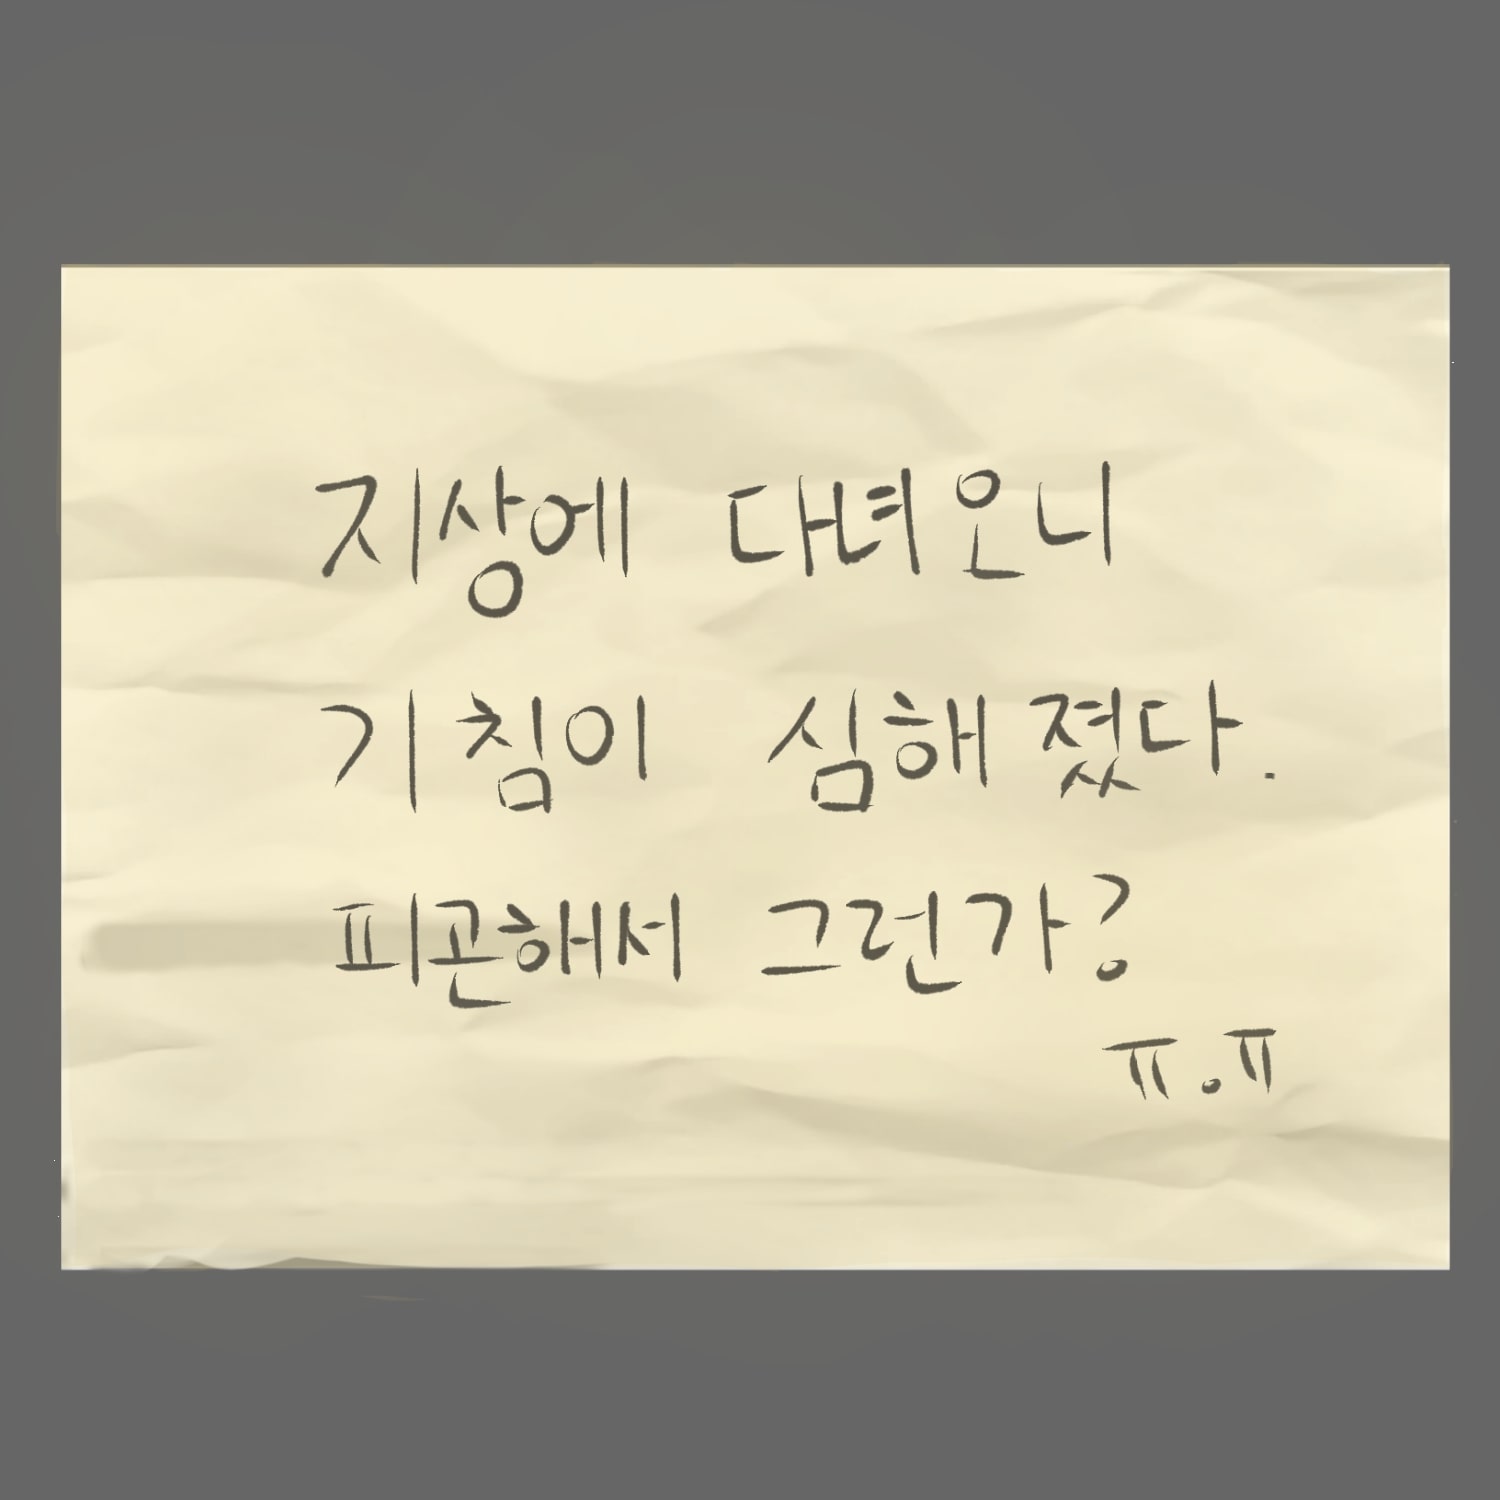 지상에 다녀오니
기침이 심해졌다.
피곤해서 그런가?
ㅠ.ㅠ